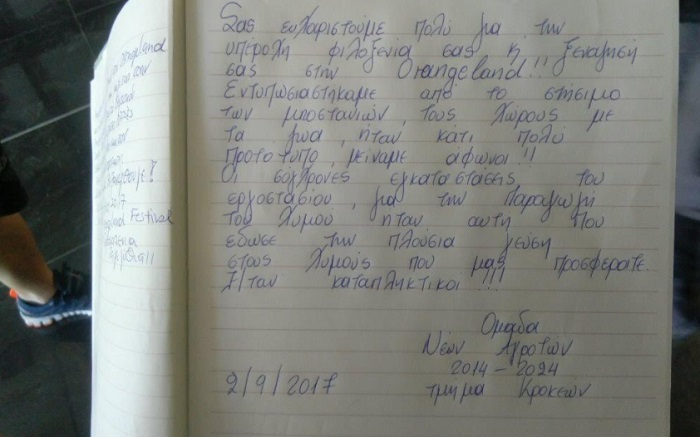 Σας ευχαριστούμε πολύ για την
υπεροχη φιλοξενία σας κ ξεναγηση
σας στην Orangeland!!
Εντυπωσιαστηκαμε απο το στησιμο
των μποστανιών, τους χώρους με
τα ζωα, ηταν κατι πολύ
πρωτοτυπο, μειναμε άφωνοι!!
Οι σύγχρονες εγκαταστασεις του
εργοστασίου, για την παραγωγη
του χυμου ηταν αυτη που
εδωσε την πλούσια γευση
στους χυμούς που μας προσφερατε.
Ηταν καταπληκτικοι!!!
Ομαδα
Νέων Αγροτών
2014 - 2024
τμημα Κροκεών
2/9/2017
Festival